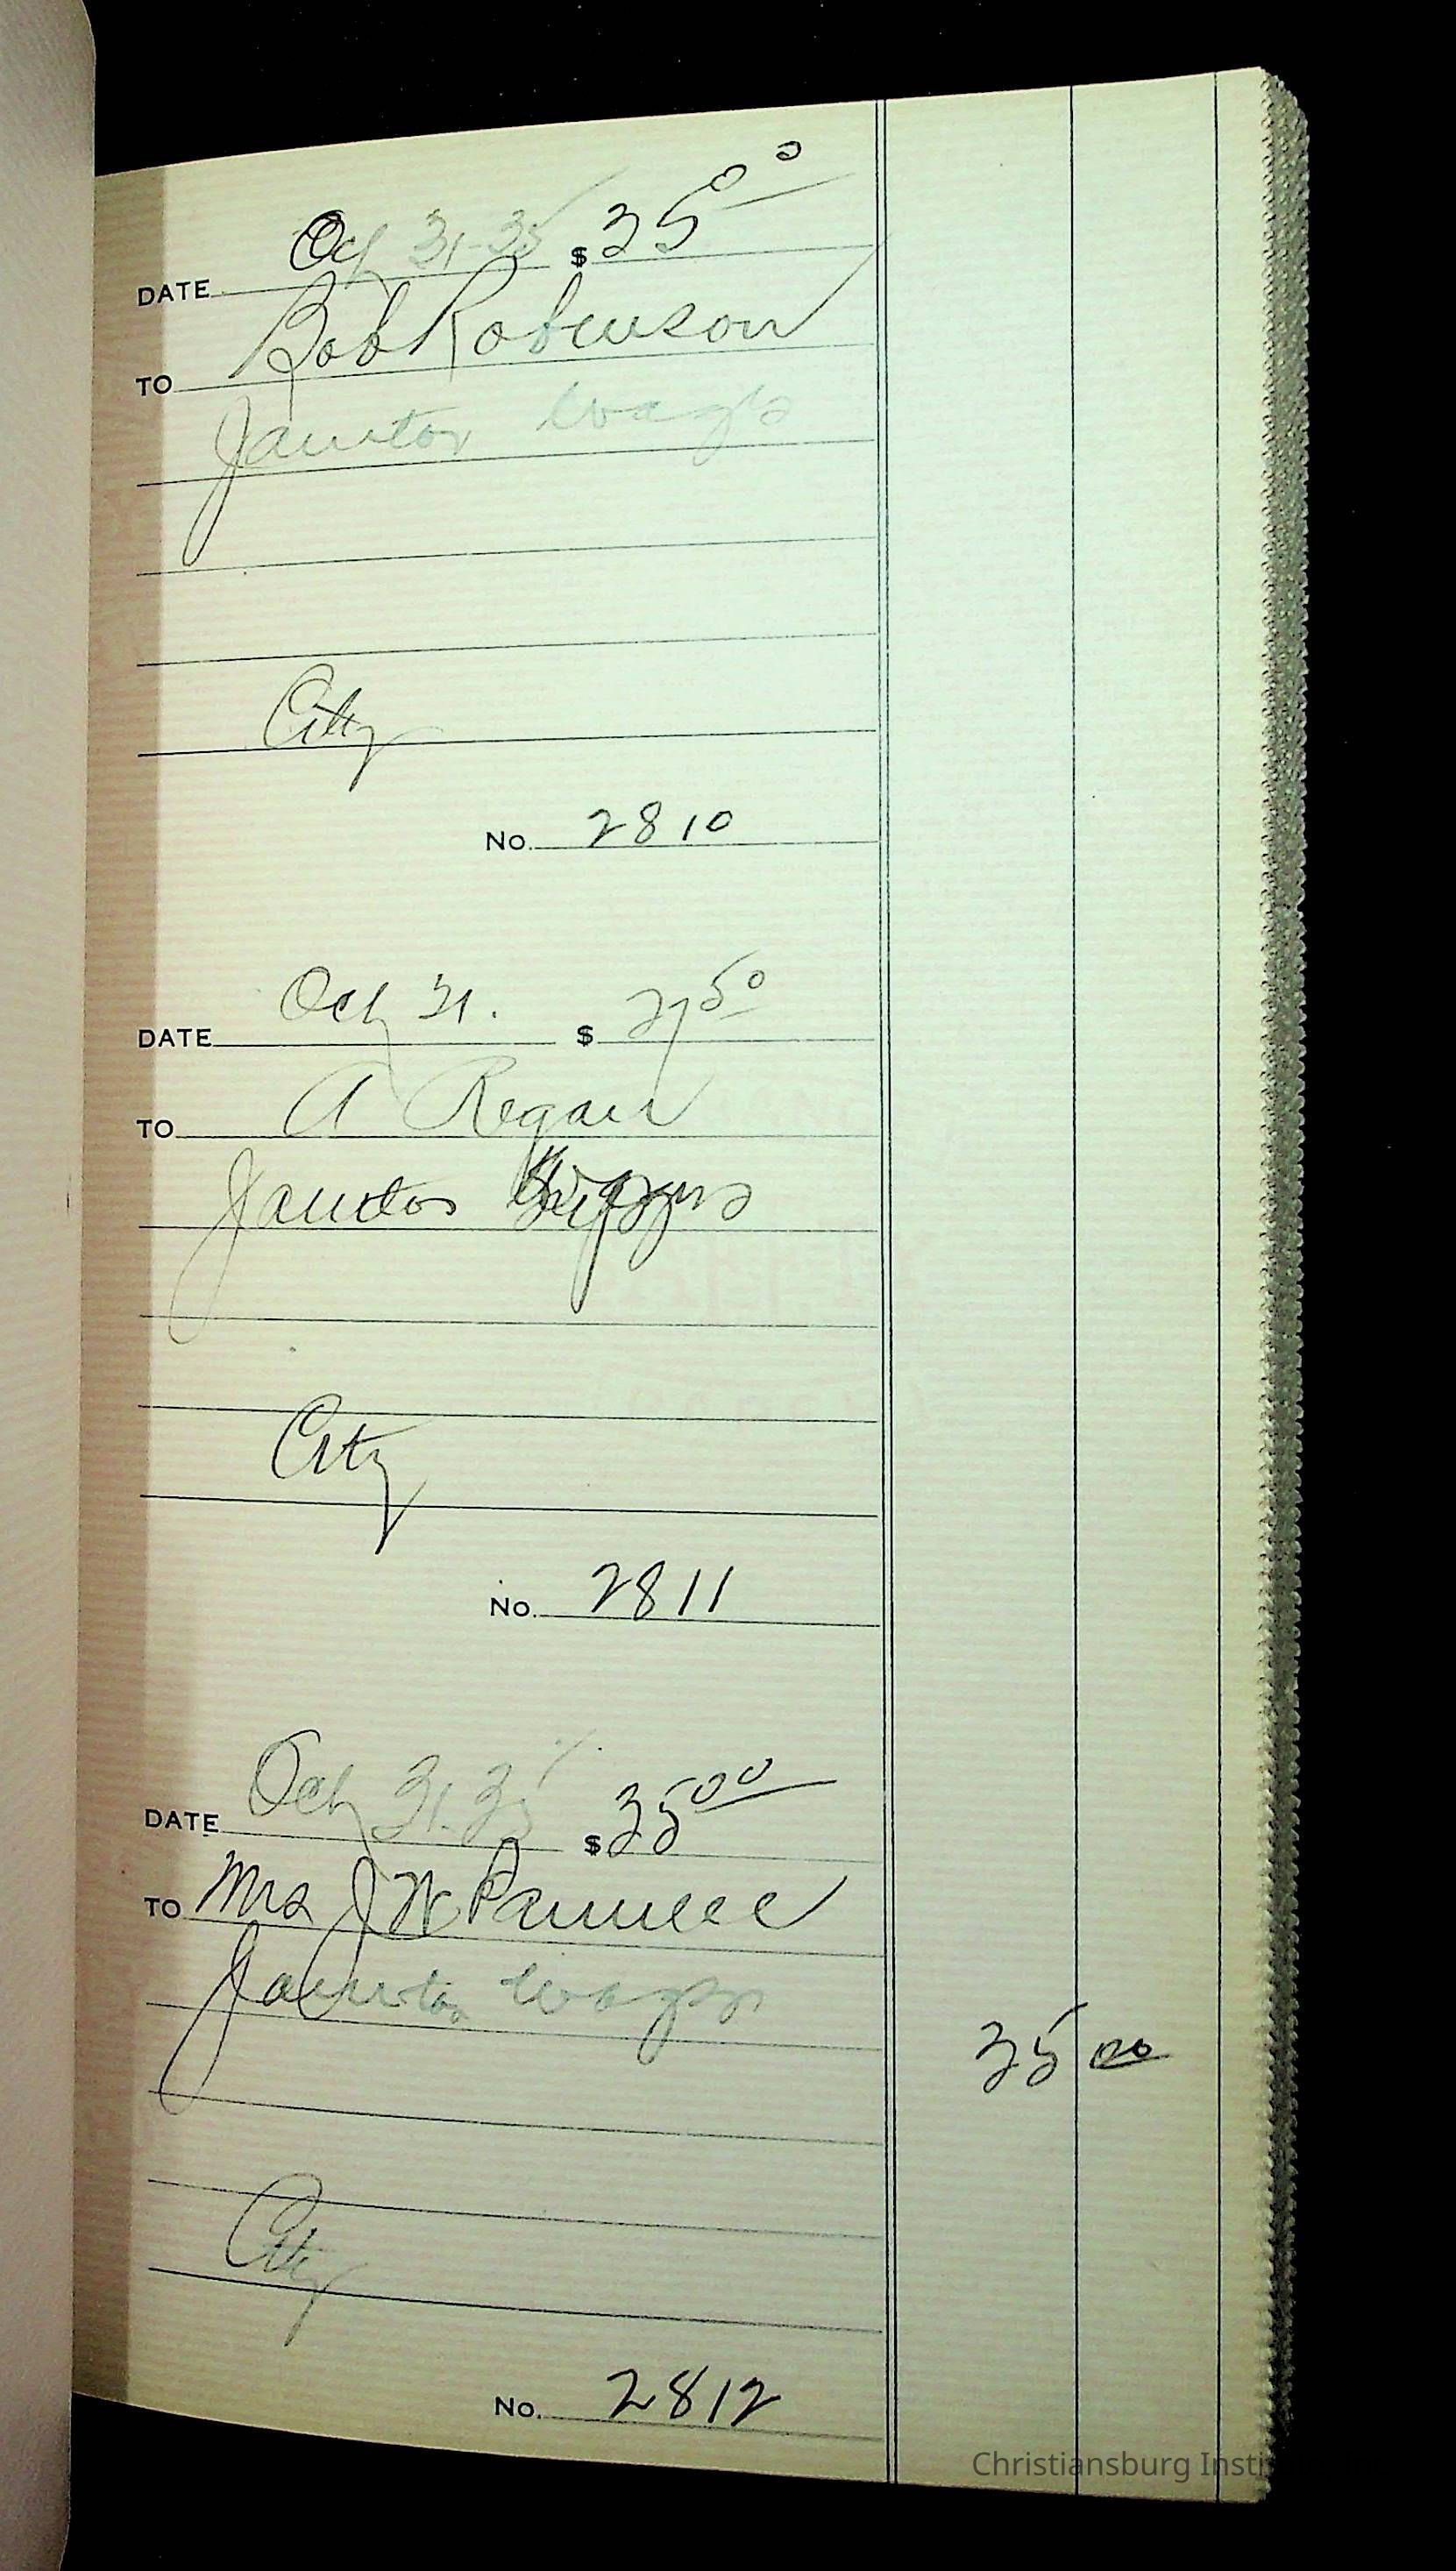 DATE Oct 31-35 $ 35 00
TO Bob Robinson
Janitor Wages
City
No. 2810
DATE Oct 31. $ 27 50
TO A Regan
Janitor
City
No. 2811
DATE Oct 31-35 $ 35 00
TO Mrs J W
Janitor Wages
35 00
City
No. 2812
Christiansburg